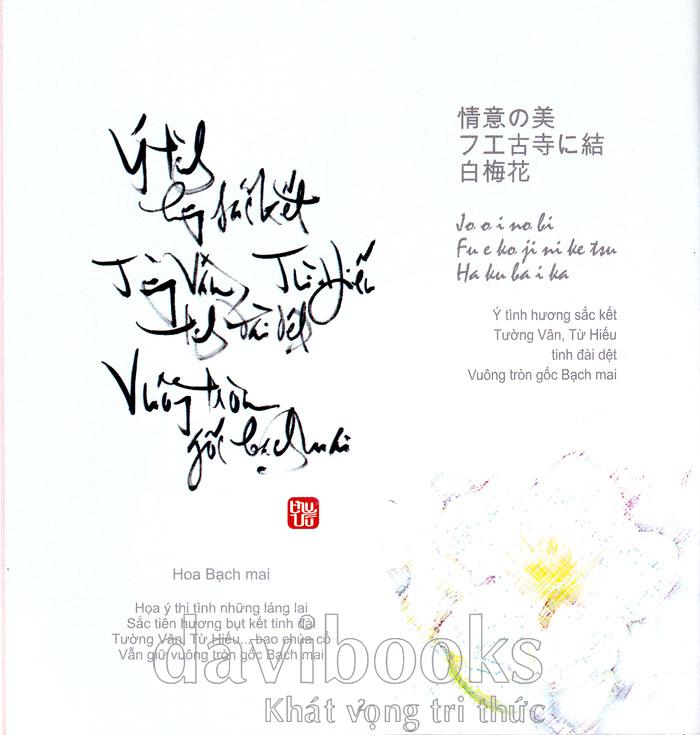 Ý tình
hương sắc kết
Tường Vân, Từ Hiếu
tinh đài dệt
Vuông tròn
gốc bạch mai
thư
Vũ
情意の美
フエ古寺に結
白梅花
Jo o i no bi
Fu e ko ji ni ke tsu
Ha ku ba i ka
Ý tình hương sắc kết
Tường Vân, Từ Hiếu
tinh đài dệt
Vuông tròn gốc Bạch mai
Hoa Bạch mai
Họa ý thi tình những láng lai
Sắc tiên hương bụt kết tinh đài
Tường Vân, Từ Hiếu... bao chùa cổ
Vẫn giữ vuông tròn gốc Bạch mai
davibooks
Khát vọng tri thức
2